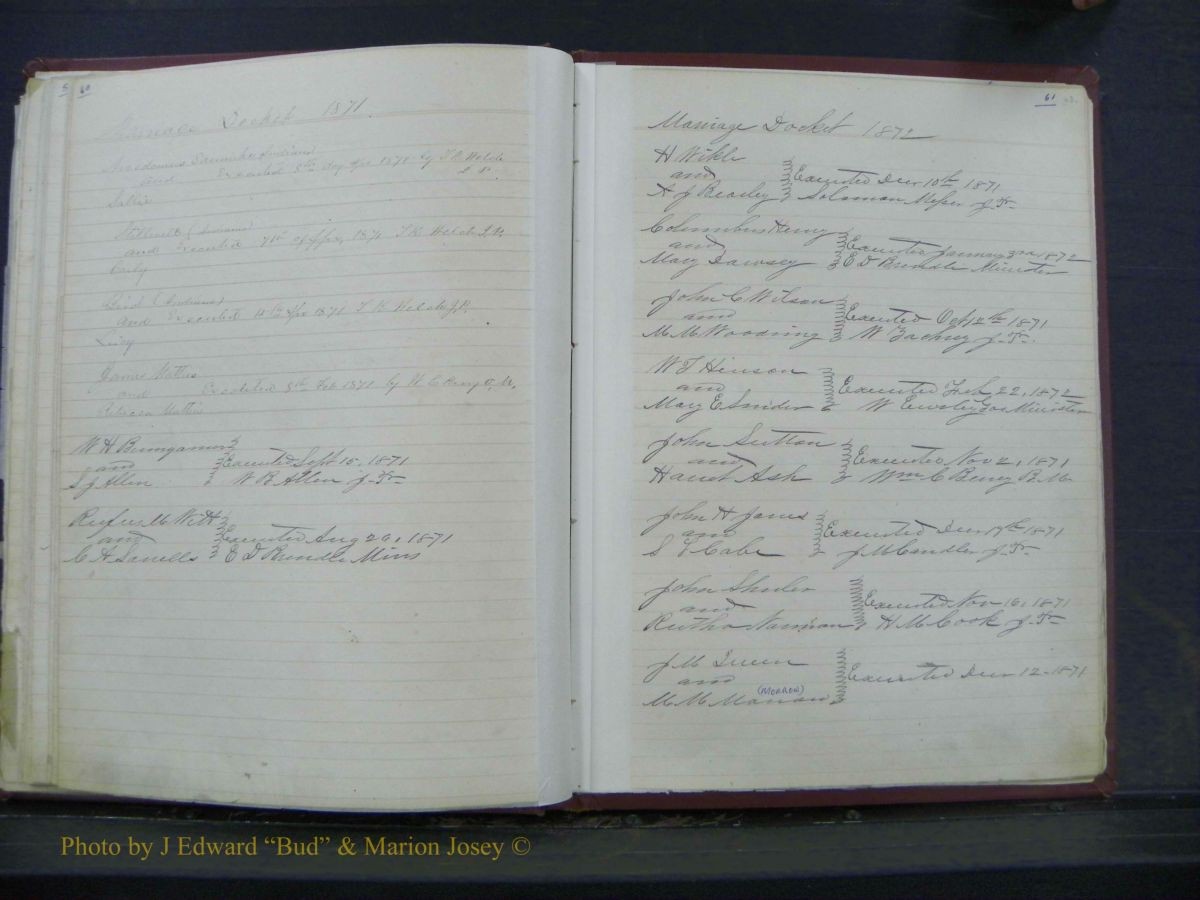 60
Marriage Docket 1871.
(Indians)
and Executed 8th day Apr 1871 by T. R. Welch
Sallie
(Indians)
and Executed 7th of Apr, 1871 T. R. Welch J.P.
(Indians)
and Executed 4th Apr 1871 T R Welch J.P.
Lucy
James Mathis
and Executed 8th Feb 1871 by W. C. Berry O. M.
Rebecca Mathis
W H Bumgarner
and Executed Sept 15, 1871
S J Allen W R Allen J. P.
Rufus M Witt
and Executed Aug 20, 1871
C A E D Brindle Mins
61
Marriage Docket 1872
H Wikle
and Executed Decr 10th 1871
A J Beasley Solomon Messer J. P.
Columbus Henry
and Executed January 3rd 1872
Mary Dawsey E D Brindle Minister
John C Wilson
and Executed Oct 12th 1871
M M Woodring W Zachery J. P.
W T Hinson
and Executed Feb 22, 1872
Mary E Snider W Minister
John Sutton
and Executed Nov 2, 1871
Hariet Ash Wm C Berry B. M.
John H Jones
and Executed Decr 19th 1871
S E Cabe J M Candler J. P.
John Shuler
and Executed Nov 16, 1871
Rutha H M Cook J. P.
J M Queen
and Executed Decr 12- 1871
(MORROW)
M M
Photo by J Edward “Bud” & Marion Josey ©